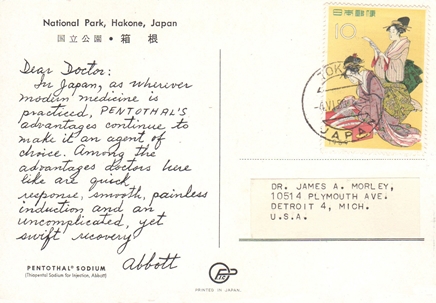 National Park, Hakone, Japan
国立公園 • 箱 根
Dear Doctor:
In Japan, as wherever
modern medicine is
practiced, PENTOTHAL'S
advantages continue to
make it an agent of
choice. Among the
advantages doctors here
like are quick
response, smooth, painless
induction and an
uncomplicated, yet
swift recovery
Abbott
PENTOTHAL® SODIUM
(Thiopental Sodium for Injection, Abbott)
日本郵便
10
JAPAN
DR. JAMES A. MORLEY,
10514 PLYMOUTH AVE.
DETROIT 4, MICH.
U.S.A.
PRINTED IN JAPAN.